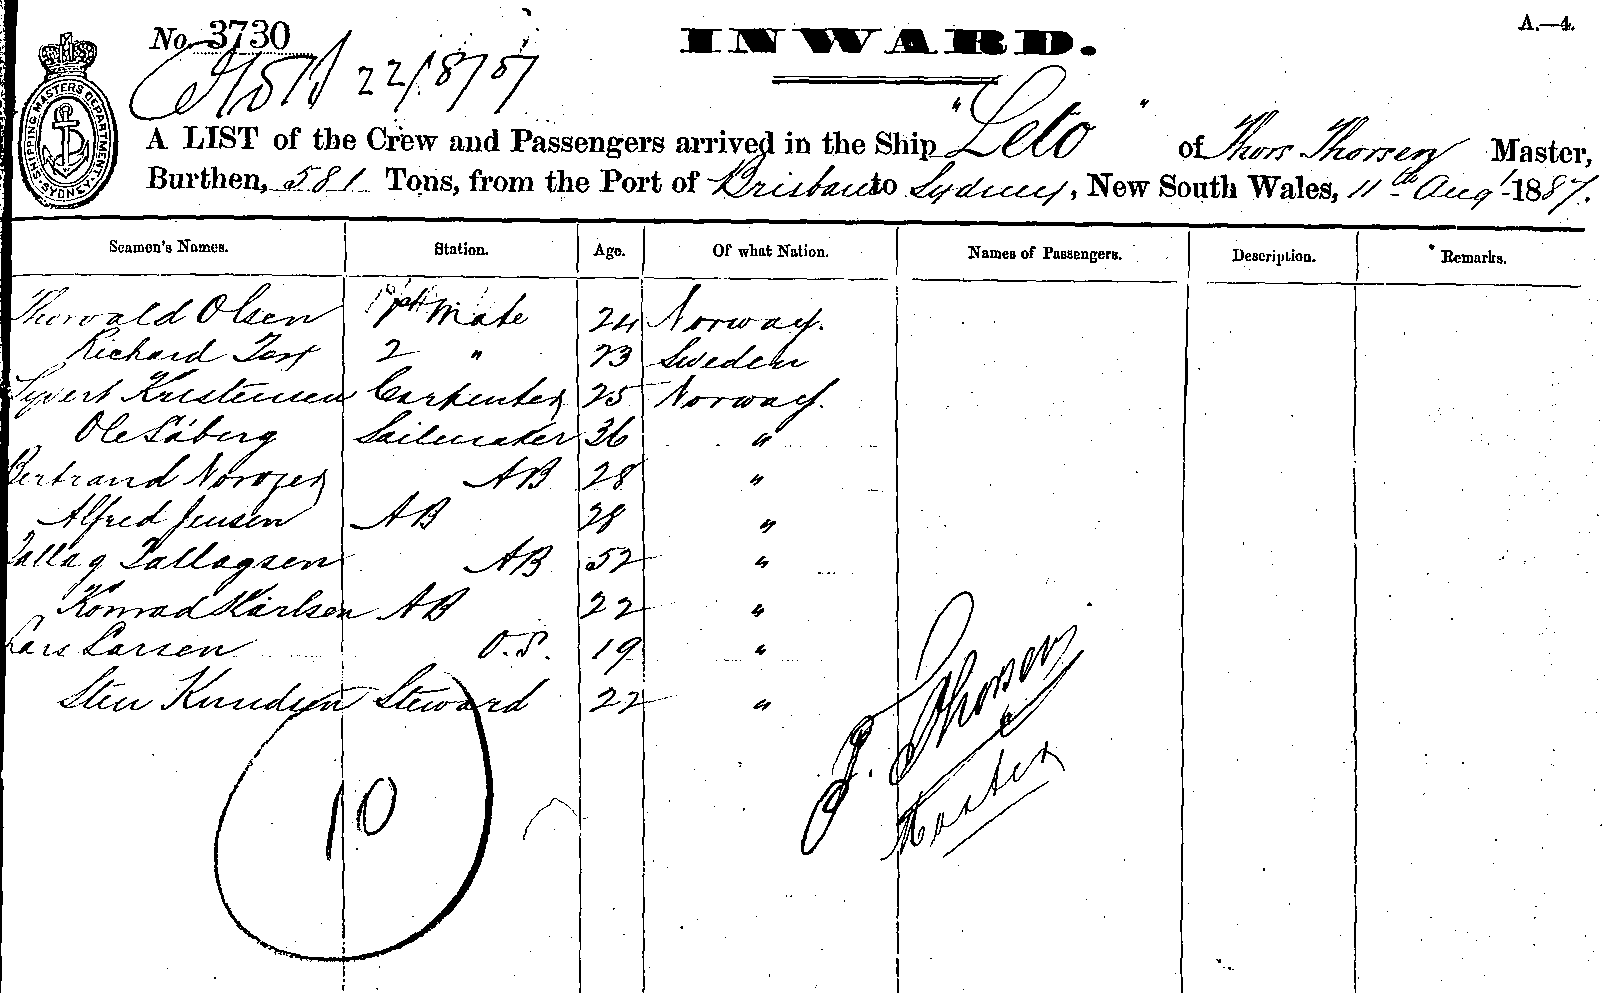 No 3730
INWARD.
A.—4.
22/8/87
SHIPPING MASTERS DEPARTMENT SYDNEY
A LIST of the Crew and Passengers arrived in the Ship "Leto" of Thors Thorsen Master,
Burthen, 581 Tons, from the Port of Brisbane to Sydney, New South Wales, 11th Augt 1887.
Seamen's Names. Station. Age. Of what Nation. Names of Passengers. Description. Remarks.
Thorvald Olsen Mate 24 Norway.
Richard 2 " 23 Sweden
Kristensen Carpenter 25 Norway.
Ole Söberg Sailmaker 36 "
Bertrand AB 28 "
Alfred Jensen AB 28 "
Tallag Tallagsen AB 52 "
Konrad Karlsen AB 22 "
Lars Larsen O.S. 19 "
Sten Knudsen Steward 22 "
T. Thorsen
Master
10